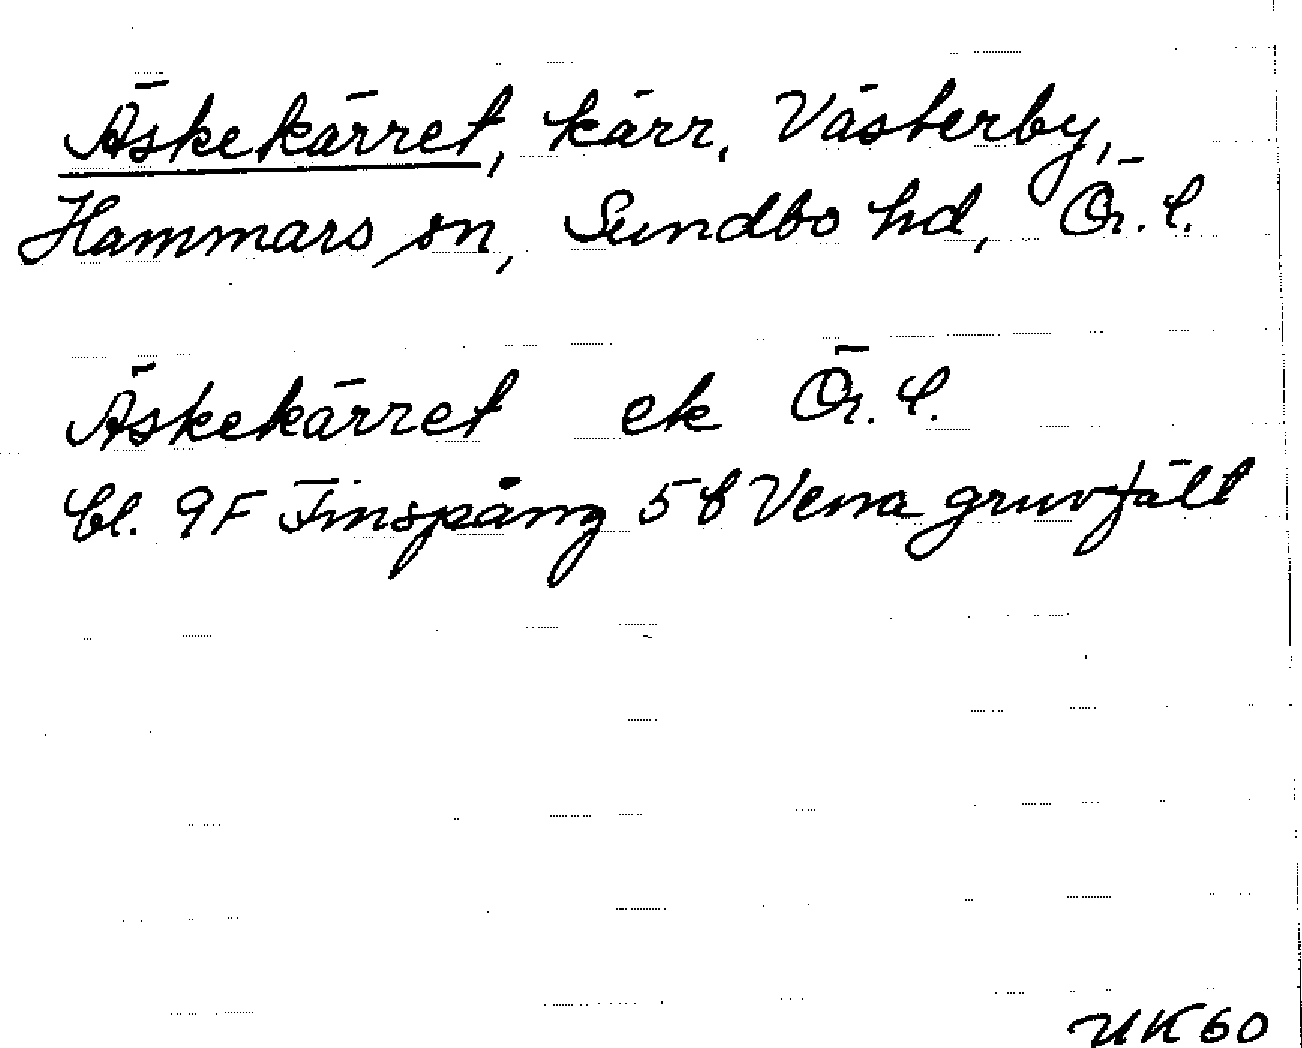 Äskekärret, kärr, Västerby,
Hammars sn, Sundbo hd, Ör. l.
Äskekärret ek Ör. l.
bl. 9F Finspång 5 b Vena gruvfält
UK 60